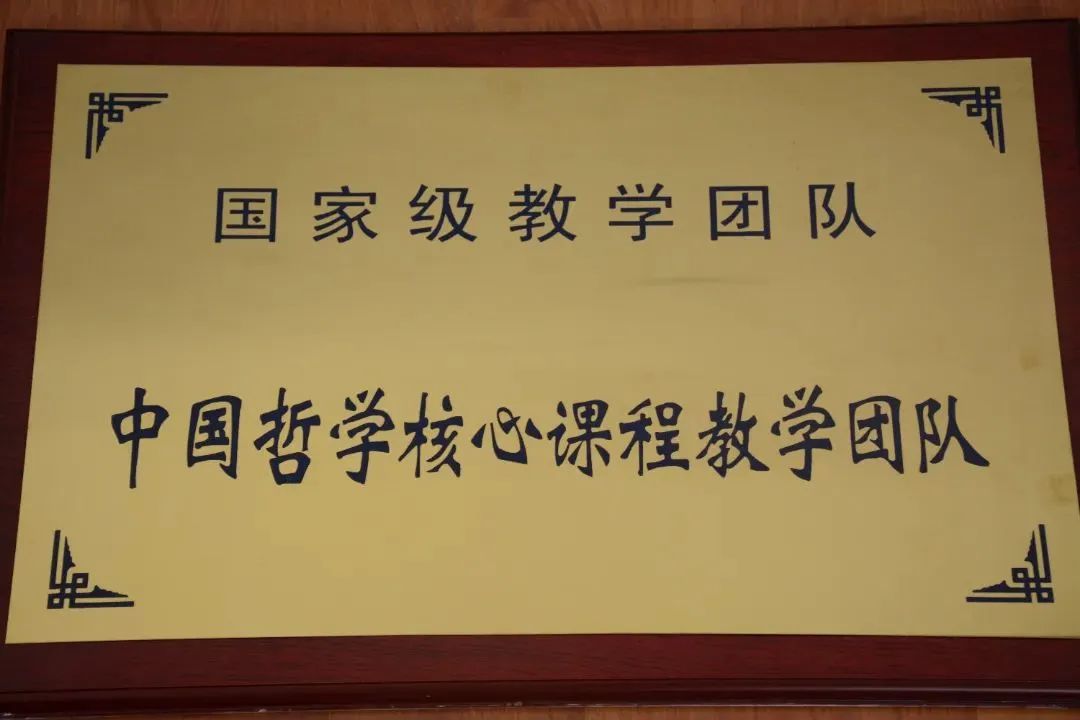 国家级教学团队
中国哲学核心课程教学团队